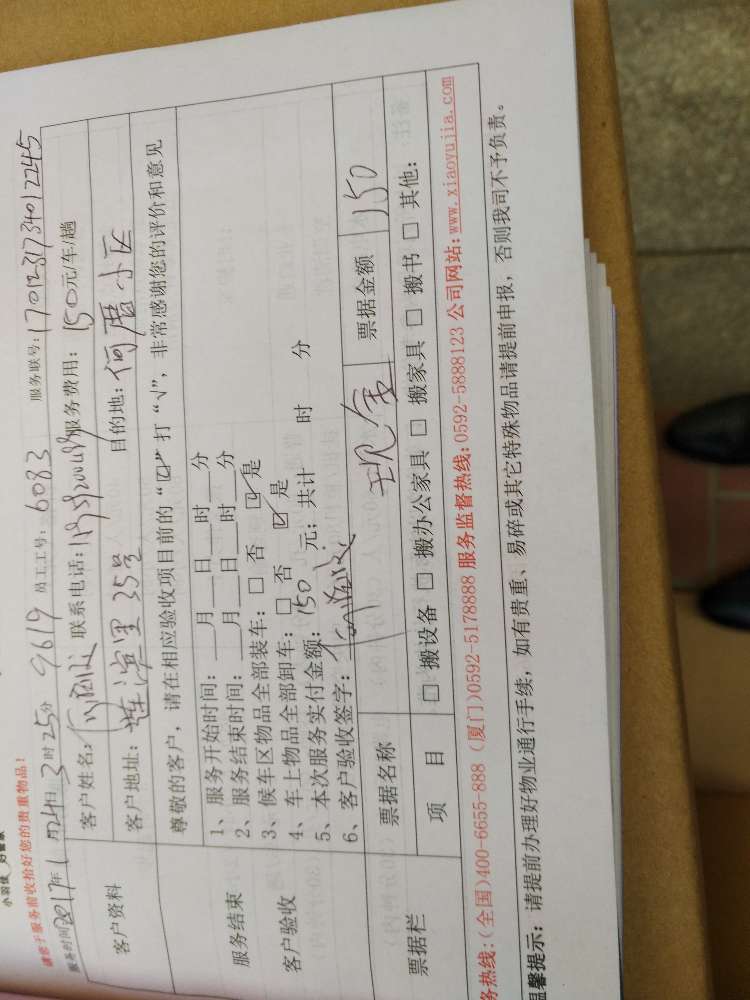 小羽佳 好管家
请您于服务前收拾好您的贵重物品！
服务时间2017年1月24日3时25分 9619 员工工号：6083 服务联号：1701231734012245
客户资料
客户姓名： 联系电话： 服务费用：150元/车/趟
客户地址：莲滨里35号 目的地：何厝小区
尊敬的客户，请在相应验收项目前的“☑”打“√”，非常感谢您的评价和意见
服务结束
客户验收
1、服务开始时间：___月___日___时___分
2、服务结束时间：___月___日___时___分
3、候车区物品全部装车：□ 否 ☑ 是
4、车上物品全部卸车：□ 否 ☑ 是
5、本次服务实付金额：150 元；共计 时 分
6、客户验收签字：
票据栏
票据名称 现金 票据金额 150
项 目 □ 搬设备 □ 搬办公家具 □ 搬家具 □ 搬书 □ 其他：
务热线：(全国)400-6655-888 (厦门)0592-5178888 服务监督热线：0592-5888123 公司网站：www.xiaoyujia.com
温馨提示：请提前办理好物业通行手续，如有贵重、易碎或其它特殊物品请提前申报，否则我司不予负责。